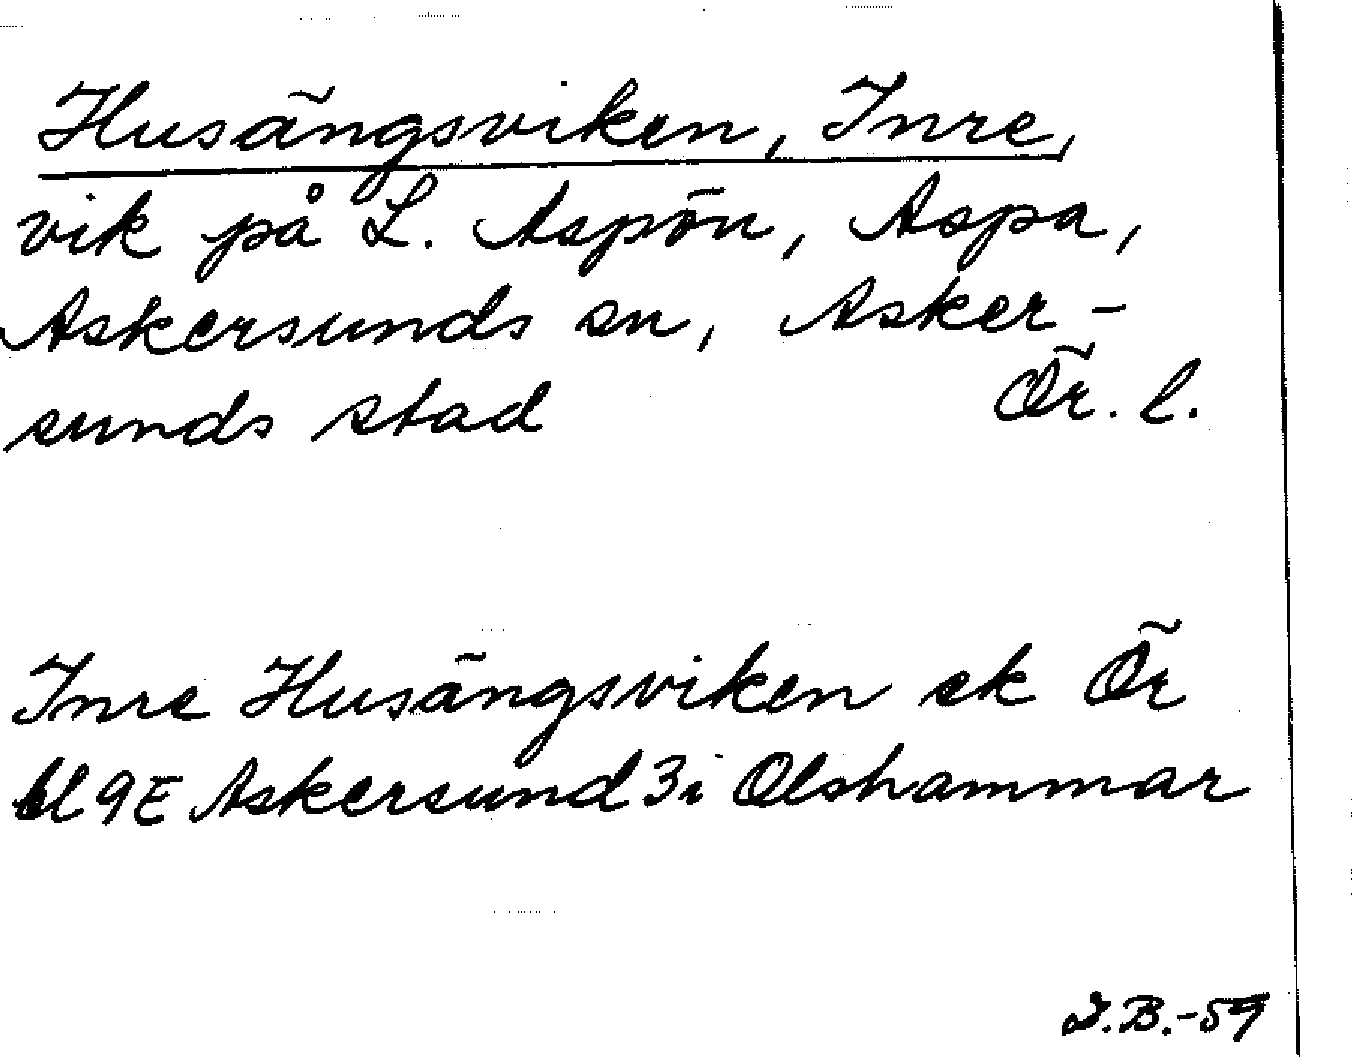 Husängsviken, Inre,
vik på L. Aspön, Aspa,
Askersunds sn, Asker-
sunds stad Ör. l.
Inre Husängsviken ek Ör
bl 9E Askersund 3i Olshammar
I.B.-59